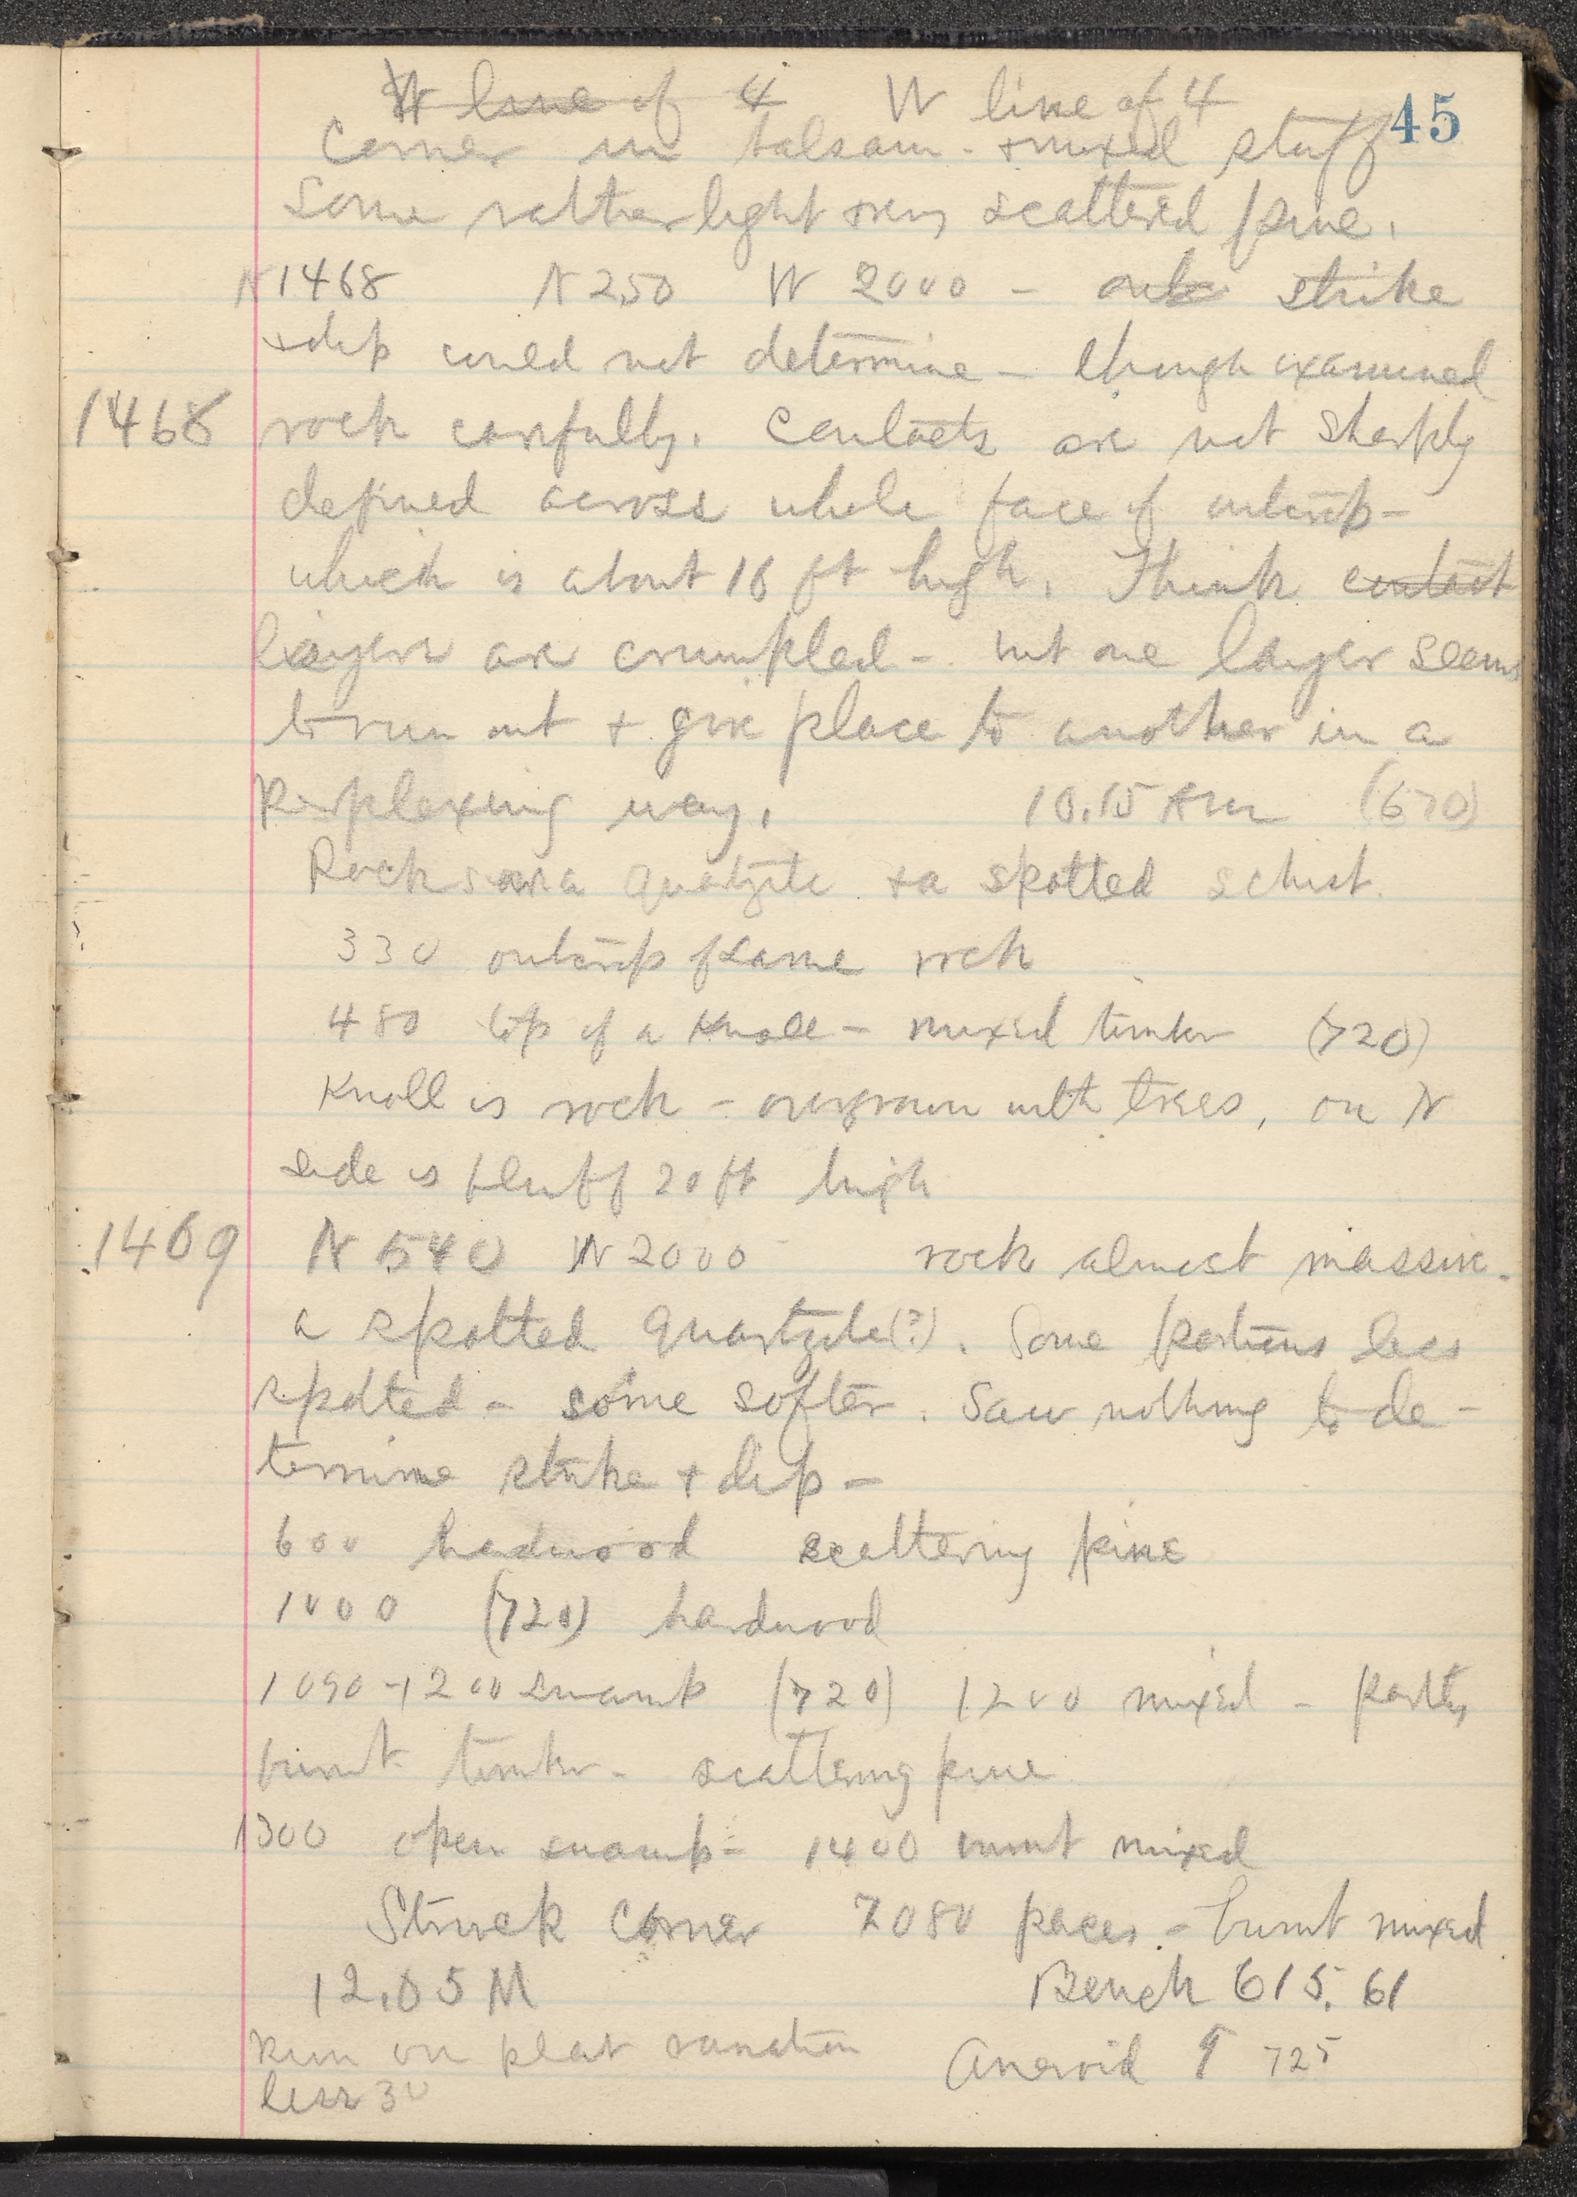 45
W line of 4 W line of 4
Corner in balsam - & mixed stuff
Some rather light & very scattered pine.
N 1468 N 250 W 2000 - strike
& dip could not determine - though examined
1468 rock carefully. Contacts are not sharply
defined across whole face of outcrop -
which is about 16 ft high. Think contact
layers are crumpled - but one layer seems
to run out & give place to another in a
perplexing way. 10.15 AM (670)
Rocks are a quartzite & a spotted schist.
330 outcrop of same rock
480 top of a knoll - mixed timber (720)
Knoll is rock - overgrown with trees, on N
side is bluff 20 ft high
1469 N 540 W 2000 rock almost massive.
a spotted quartzite(?). Some portions less
spotted - some softer. Saw nothing to de-
termine strike & dip -
600 hardwood scattering pine
1000 (720) hardwood
1090 - 1200 swamp (720) 1200 mixed - partly
burnt timber - scattering pine
1300 open swamp - 1400 burnt mixed
Struck corner 2080 paces. - burnt mixed
12.05 M Bench 615.61
Run on plat variation Aneroid 725
less 30